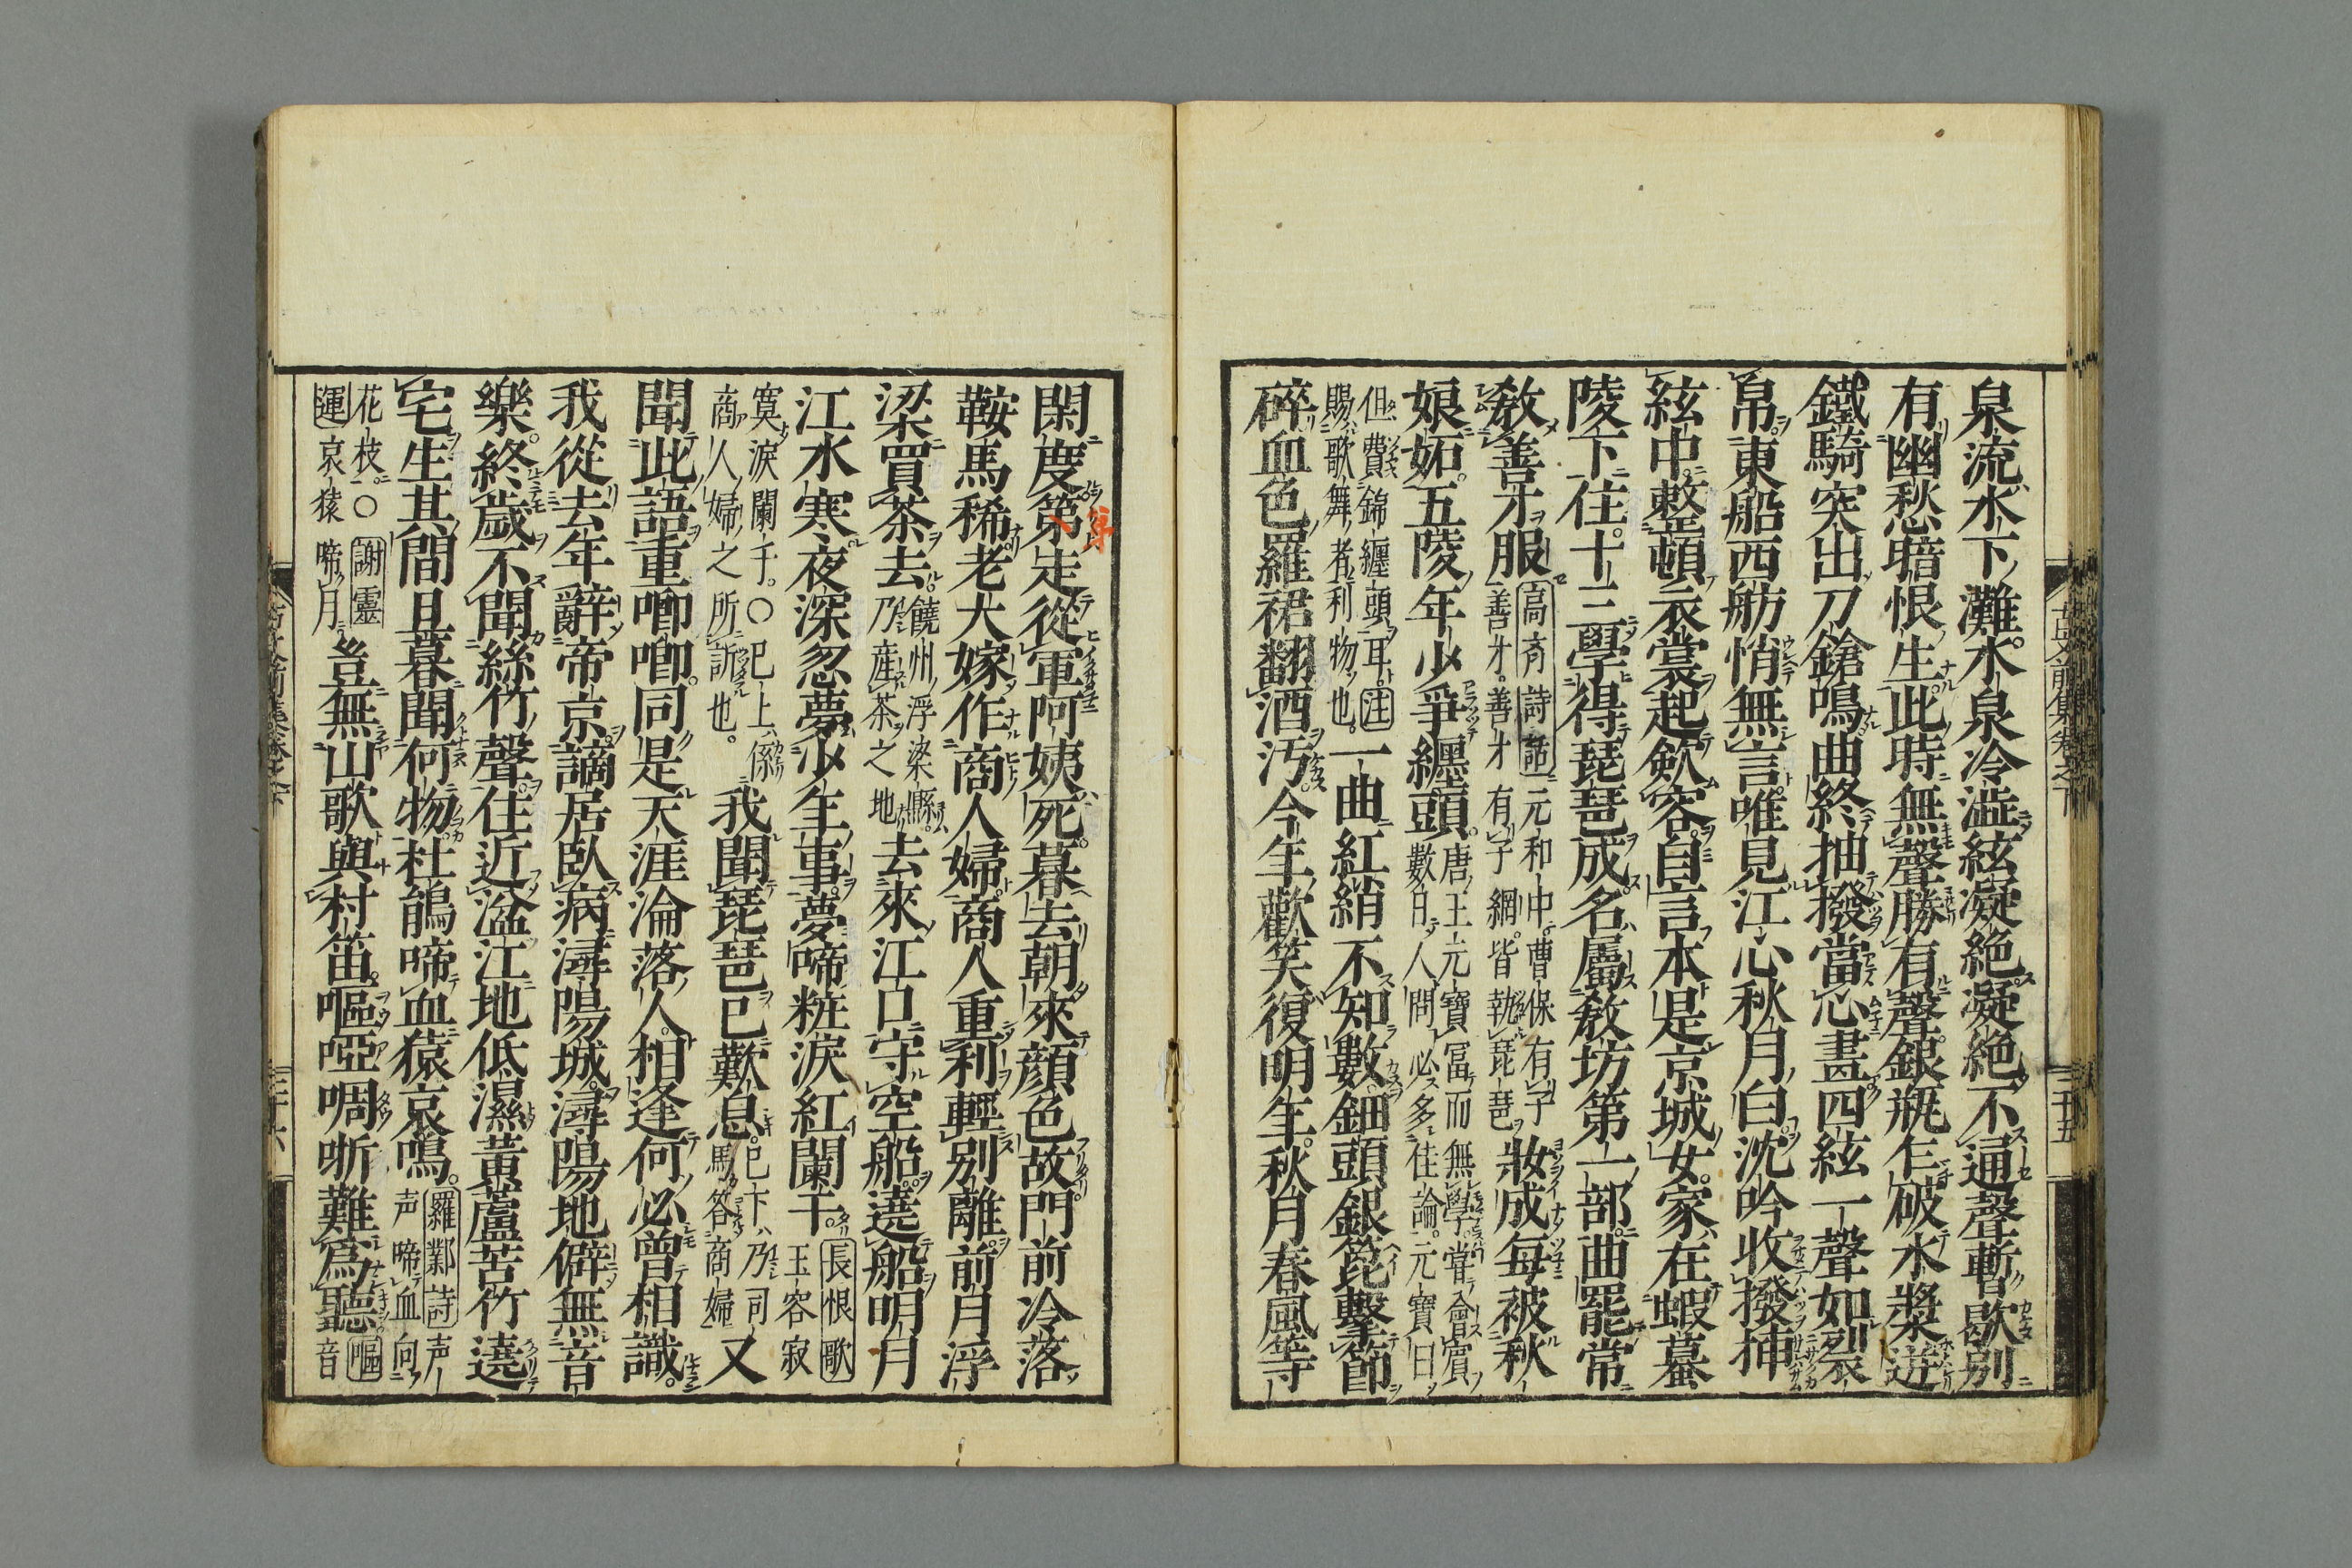 泉流水下灘水泉冷澁絃凝絶凝絶不通聲暫歇別
有幽愁暗恨生此時無聲勝有聲銀瓶乍破水漿迸
鐵騎突出刀鎗鳴曲終抽撥當心畫四絃一聲如裂
帛東船西舫悄無言唯見江心秋月白沈吟收撥插
絃中整頓衣裳起斂容自言本是京城女家在蝦蟇
陵下住十三學得琵琶成名屬敎坊第一部曲罷常
敎善才服
高斉詩話元和中曹保有子
善才善才有子網皆執琵琶
妝成每被秋
娘妬五陵年少爭纒頭
唐王元寶冨而無學嘗會賓
數日人問必多佳論元寶曰
但費錦纒頭耳注
賜歌舞者利物也
一曲紅綃不知數鈿頭銀箆擊節
碎血色羅裙翻酒汚今年歡笑復明年秋月春風等
古文前集卷之下
三十五
閑度第走從軍阿姨死暮去朝來顔色故門前冷落
第
鞍馬稀老大嫁作商人婦商人重利輕別離前月浮
梁買茶去
饒州浮梁縣
乃産茶之地
去來江口守空船遶船明月
江水寒夜深忽夢少年事夢啼粧淚紅闌干
長恨歌
玉容寂
寞淚闌干○已上係
商人婦之所訴也
我聞琵琶已歎息
已下乃司
馬答商婦
又
聞此語重喞喞同是天涯淪落人相逢何必曾相識
我從去年辭帝京謫居臥病潯陽城潯陽地僻無音
樂終歲不聞絲竹聲住近湓江地低濕黃蘆苦竹遶
宅生其間旦暮聞何物杜鵑啼血猿哀鳴
羅鄴詩声
声啼血向
花枝○謝靈
運哀猿啼月
豈無山歌與村笛嘔啞啁哳難爲聽
嘔
音
三十六